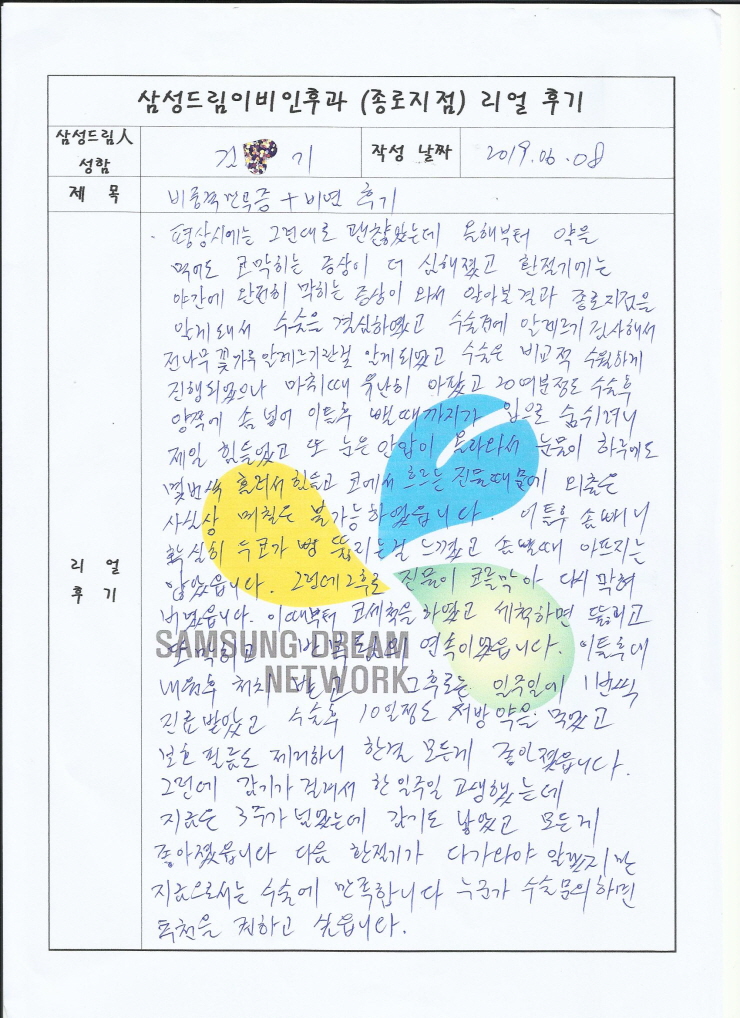 삼성드림이비인후과 (종로지점) 리얼 후기
삼성드림人
성함
김 기
작성 날짜
2019.06.08
제 목
비중격만곡증 + 비염 후기
평상시에는 그런대로 괜찮았는데 올해부터 약을
먹어도 코막히는 증상이 더 심해졌고 환절기에는
야간에 완전히 막히는 증상이 와서 알아본결과 종로지점을
알게돼서 수술을 결심하였고 수술전에 알레르기 검사해서
전나무 꽃가루 알레르기란걸 알게되었고 수술은 비교적 수월하게
진행되었으나 마취때 유난히 아팠고 20여분정도 수술후
양쪽에 솜 넣어 이틀후 뺄때까지가 입으로 숨쉬려니
제일 힘들었고 또 눈은 안압이 올라와서 눈물이 하루에도
몇번씩 흘려서 힘들고 코에서 흐르는 진물때문에 외출은
사실상 며칠은 불가능하였읍니다. 이틀후 솜빼니
확실히 두코가 뻥 뚫리는걸 느꼈고 솜뺄때 아프지는
않았읍니다. 그런데 그후로 진물이 코를막아 다시 막혀
버렸읍니다. 이때부터 코세척을 하였고 세척하면 뚫리고
또 막히고 반복됨의 연속이였읍니다. 이틀후에
내원후 처치 받고 그후로는 일주일에 1번씩
진료받았고 수술후 10일정도 처방 약을 먹었고
보호 필름도 제거하니 한결 모든게 좋아졌읍니다.
그런데 감기가 걸려서 한 일주일 고생했는데
지금은 3주가 넘었는데 감기도 낳었고 모든게
좋아졌읍니다 다음 환절기가 다가와야 알겠지만
지금으로서는 수술에 만족합니다 누군가 수술문의하면
추천을 전하고 싶읍니다.
리 얼
후 기
SAMSUNG DREAM
NETWORK